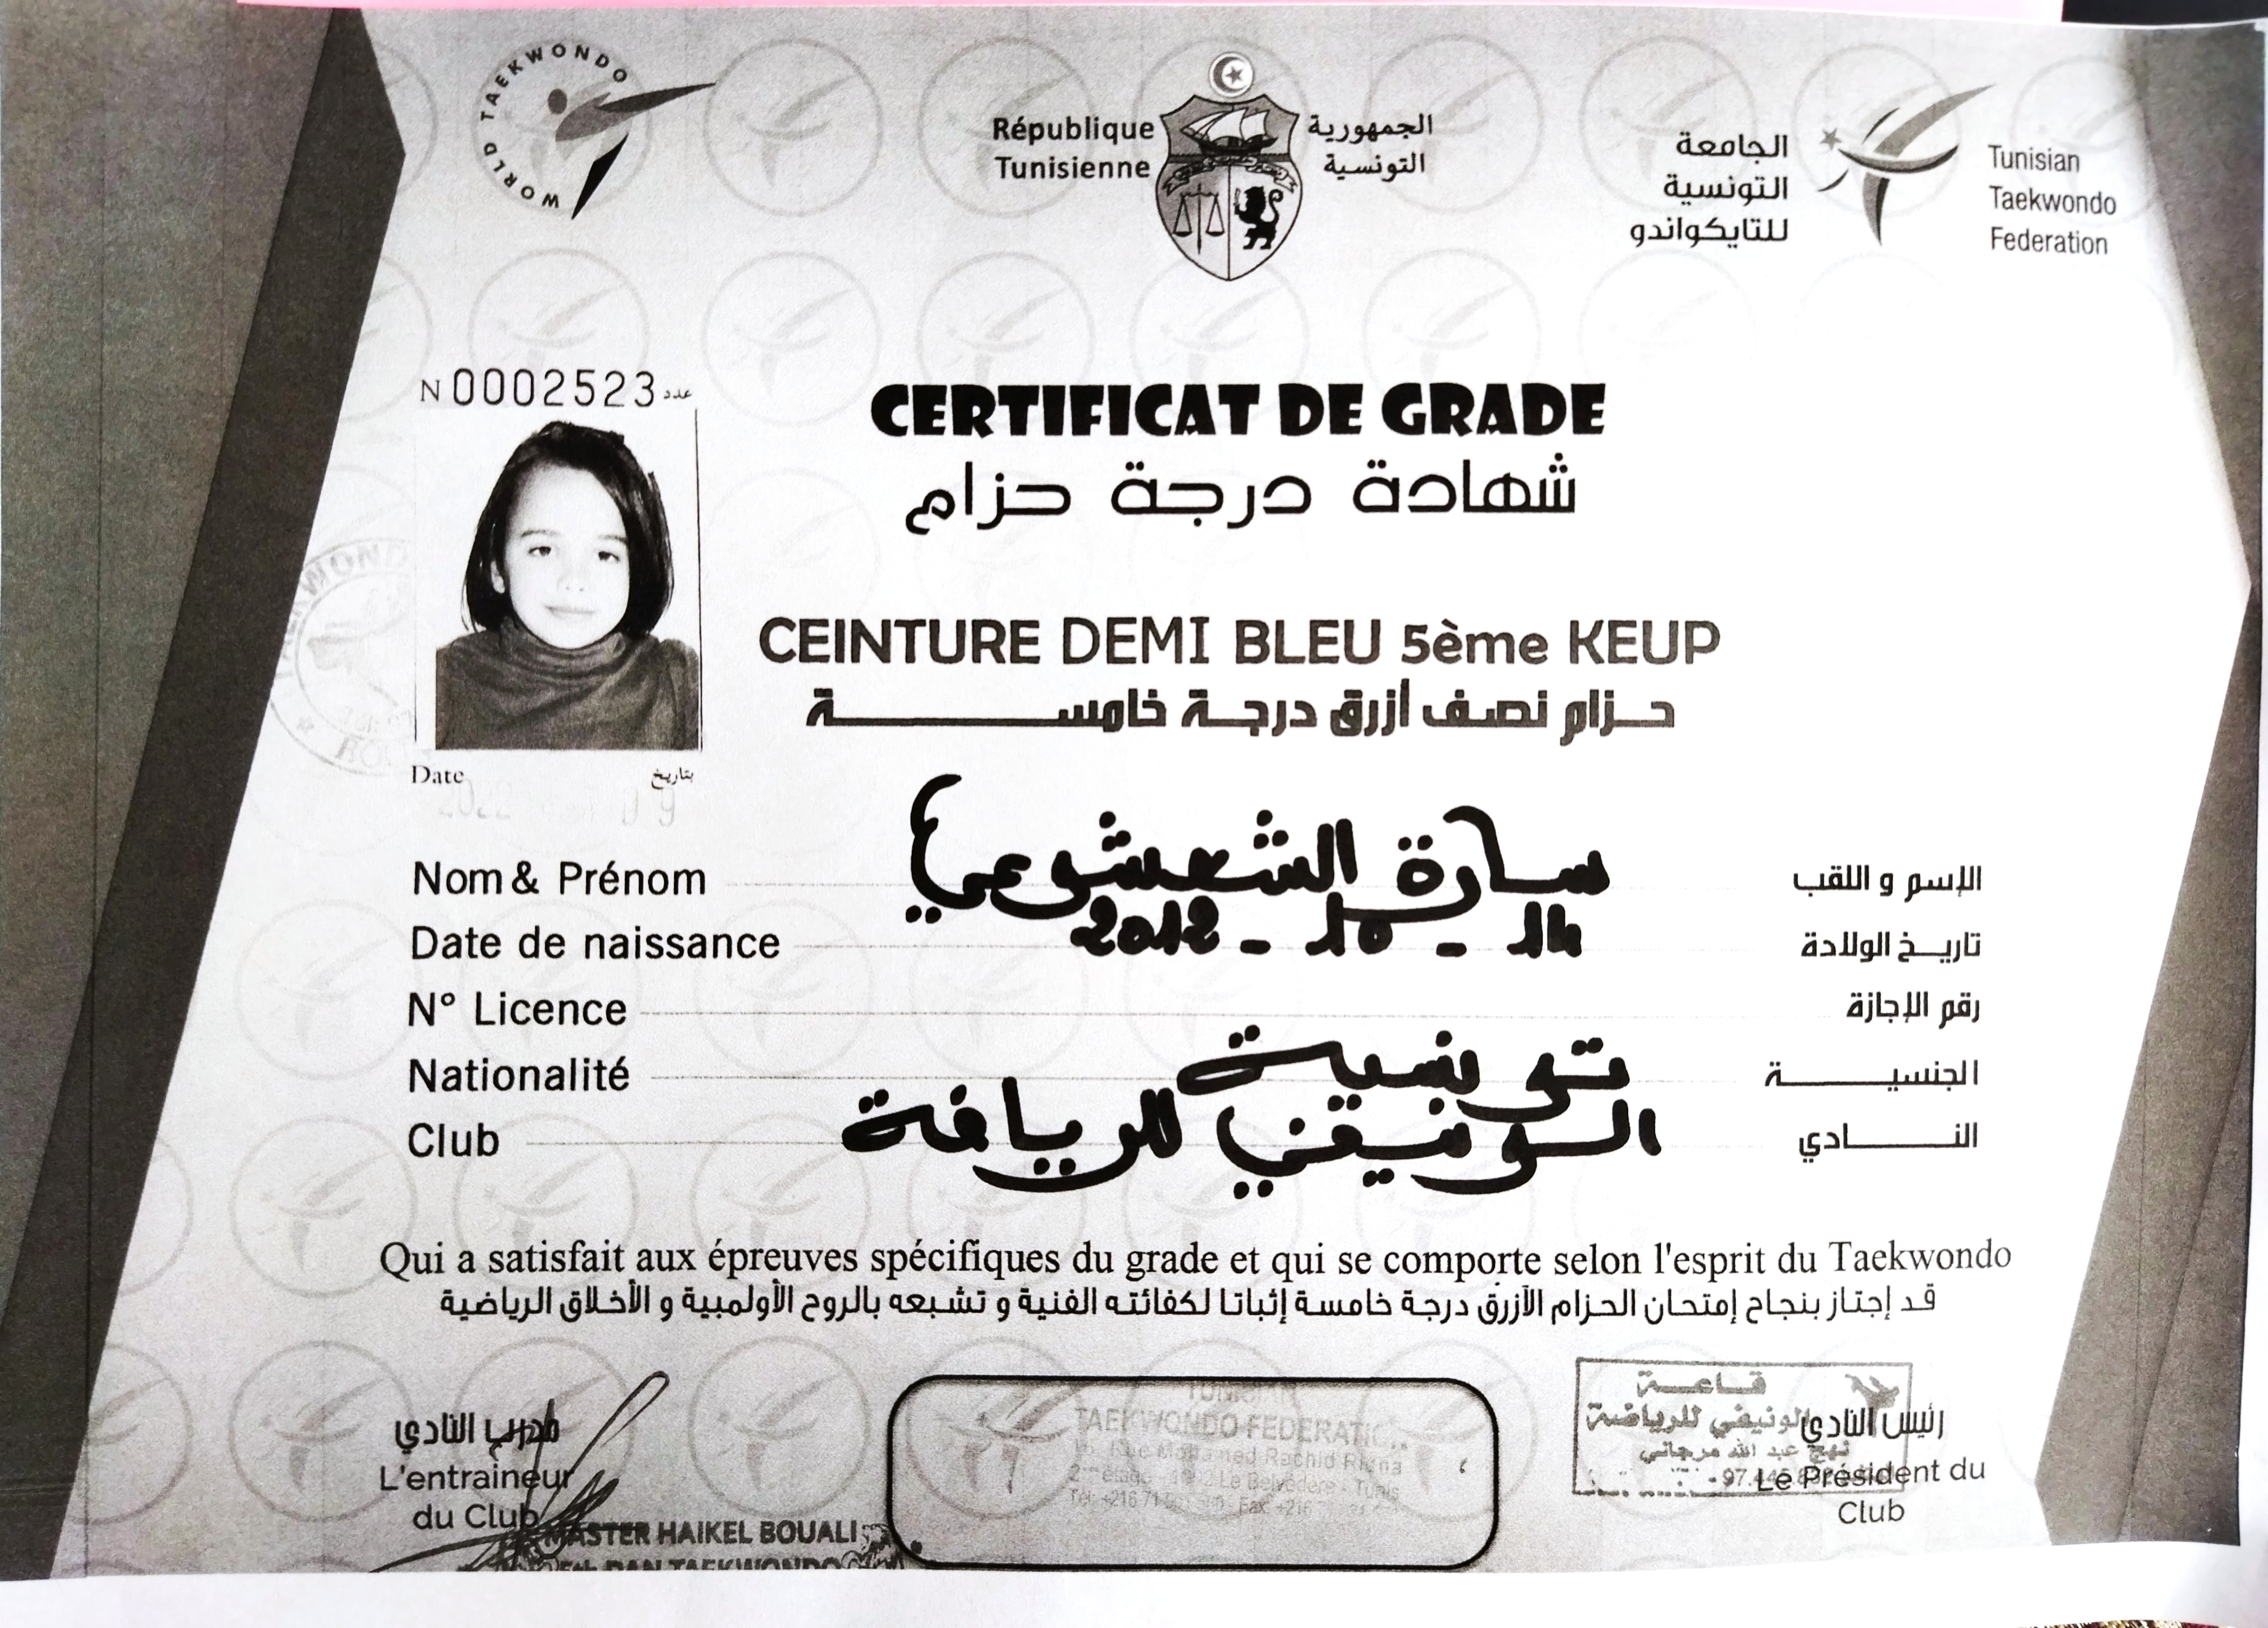 WORLD TAEKWONDO
République
Tunisienne
الجمهورية
التونسية
الجامعة
التونسية
للتايكواندو
Tunisian
Taekwondo
Federation
N 0002523 عدد
CERTIFICAT DE GRADE
شهادة درجة حزام
CEINTURE DEMI BLEU 5ème KEUP
حزام نصف أزرق درجة خامسة
Date بتاريخ
2022 09
Nom & Prénom سارة الشعشوعي الإسم و اللقب
Date de naissance 2012 - 10 - 14 تاريخ الولادة
N° Licence رقم الإجازة
Nationalité تونسية الجنسية
Club الونيفي للرياضة النادي
Qui a satisfait aux épreuves spécifiques du grade et qui se comporte selon l'esprit du Taekwondo
قد إجتاز بنجاح إمتحان الحزام الأزرق درجة خامسة إثباتا لكفائته الفنية و تشبعه بالروح الأولمبية و الأخلاق الرياضية
مدرب النادي
L'entraineur
du Club
MASTER HAIKEL BOUALI
5th DAN TAEKWONDO
TUNISIAN
TAEKWONDO FEDERATION
Rue Mohamed Rachid Ridha
2ème étage - 1002 Le Belvédère - Tunis
Tél: +216 71 Fax: +216
قاعة
الونيفي للرياضة
نهج عبد الله مرجاني
رئيس النادي
Le Président du
Club